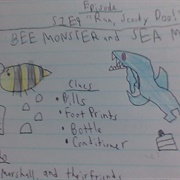 Episode
S1E9 "Run, Scooby Doo!"
BEE MONSTER and SEA M
Clues
• Bills
• Foot Prints
• Bottle
• Conditioner
Marshall, and their friends